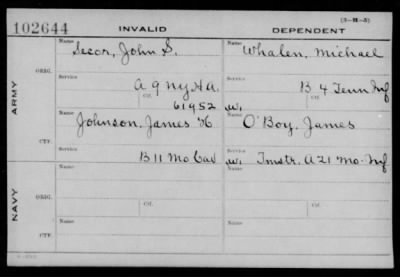 (3—M—5)
102644 INVALID DEPENDENT
Name Name
Secor, John S. Whalen, Michael
ORIG. Service Service
A 9 NY H A. B 4 Tenn Inf
Ctf. Ctf.
61952 w.
ARMY Name Name
Johnson, James H O'Boy, James
CTF. Service Service
B 11 Mo Cav w. Tmstr. A 21 Mo. Inf
Name Name
ORIG. Service Service
Ctf. Ctf.
NAVY Name Name
CTF. Service Service